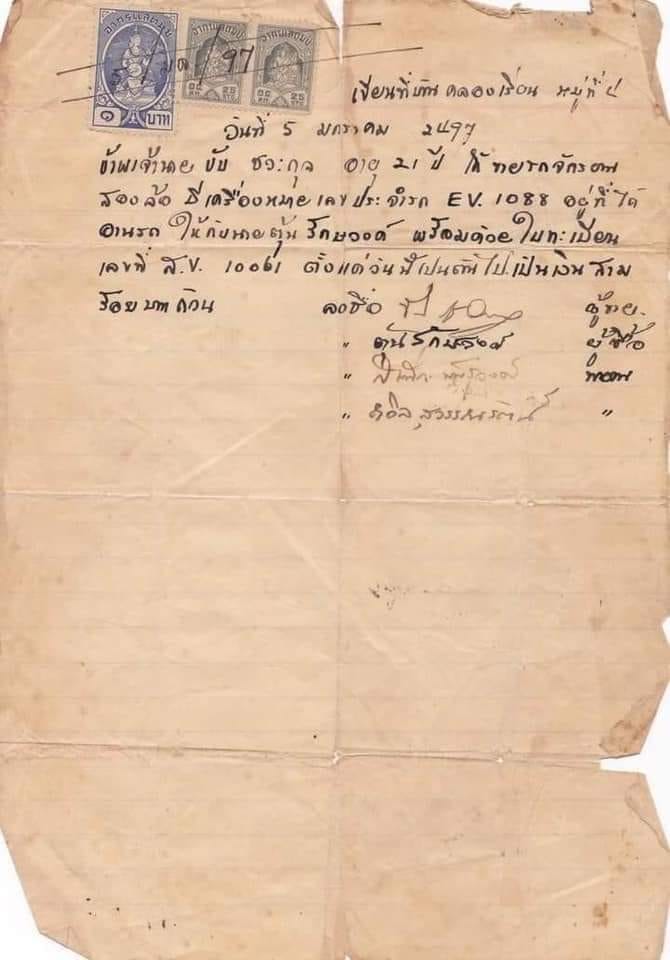 อากรแสตมป์ อากรแสตมป์ อากรแสตมป์
๑ บาท ๒๕ 25 ๒๕ 25
5 / / 97
เขียนที่บ้าน คลองเรียน หมู่ที่ ๔
วันที่ 5 มกราคม 2497
ข้าพเจ้านาย ขับ ชวะกุล อายุ 21 ปี ได้ขายรถจักรยาน
สองล้อ มีเครื่องหมาย เลขประจำรถ EV. 1088 อยู่ที่ใต้
อานรถ ให้กับนายตุ้น รักษวงศ์ พร้อมด้วยใบทะเบียน
เลขที่ ส.ข. 10061 ตั้งแต่วันนี้เป็นต้นไป เป็นเงินสาม
ร้อยบาทถ้วน ลงชื่อ ผู้ขาย.
" ตุ้น รักษวงศ์ ผู้ซื้อ
" พยาน
" สุวรรณรัตน์ "